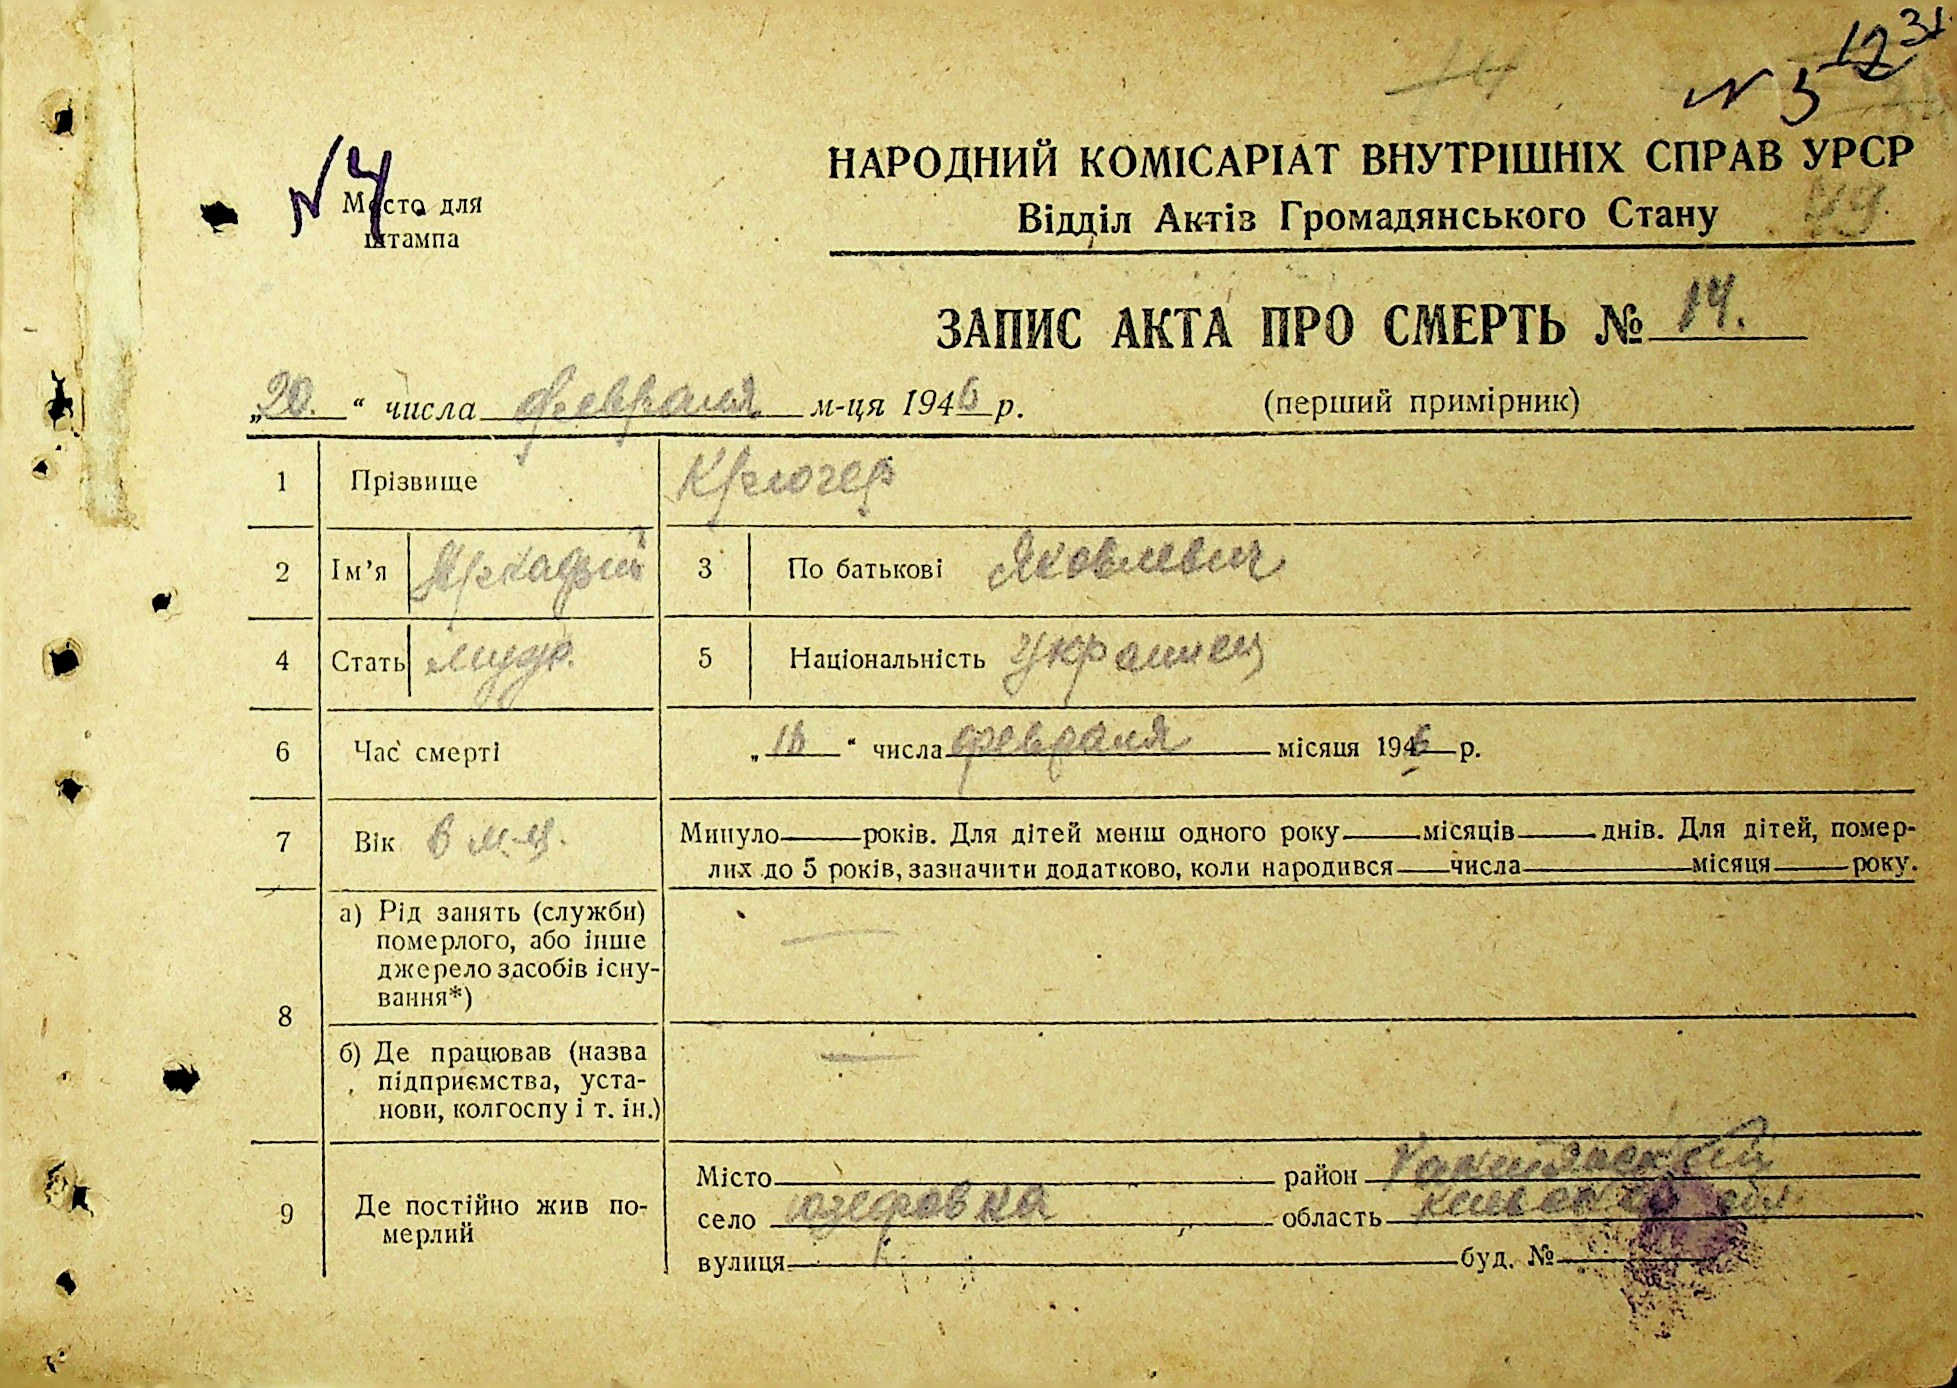 31
12
N 5
14
N 4
Место для
штампа
НАРОДНИЙ КОМІСАРІАТ ВНУТРІШНІХ СПРАВ УРСР
Відділ Актів Громадянського Стану
ЗАПИС АКТА ПРО СМЕРТЬ № 14.
„20.“ числа февраля м-ця 1946 р. (перший примірник)
1 Прізвище Крючер
2 Ім’я Аркадий 3 По батькові Яковлевич
4 Стать муж. 5 Національність Украинец
6 Час смерті „ “ числа февраля місяця 1946 р.
7 Вік 6 м-ц. Минуло років. Для дітей менш одного року місяців днів. Для дітей, помер-
лих до 5 років, зазначити додатково, коли народився числа місяця року.
8 а) Рід занять (служби)
померлого, або інше
джерело засобів існу-
вання*)
б) Де працював (назва
підприємства, уста-
нови, колгоспу і т. ін.)
9 Де постійно жив по-
мерлий
Місто район Ракитянский
село Юзефовка область Киевской обл.
вулиця буд. №